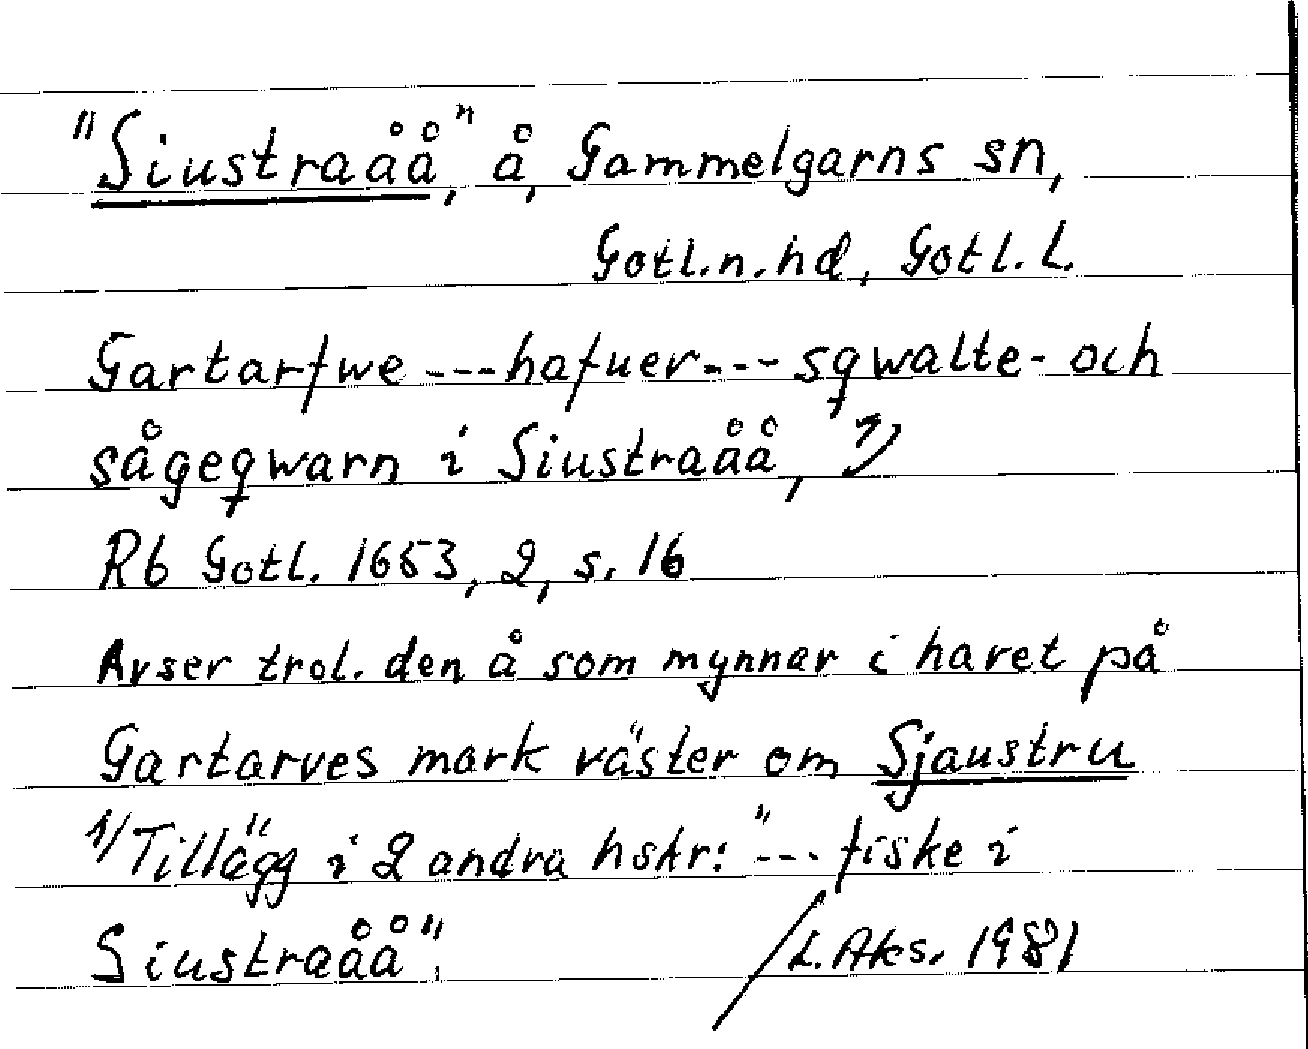 "Siustraåå", å, Gammelgarns sn,
Gotl.n.hd, Gotl. L.
Gartarfwe ---hafuer--- sqwalte- och
sågeqwarn i Siustraåå, 1)
Rb Gotl. 1653, 2, s. 16
Avser trol. den å som mynnar i havet på
Gartarves mark väster om Sjaustru
1) Tillägg i 2 andra hskr: "--- fiske i
Siustraåå".
/L. Aks. 1981